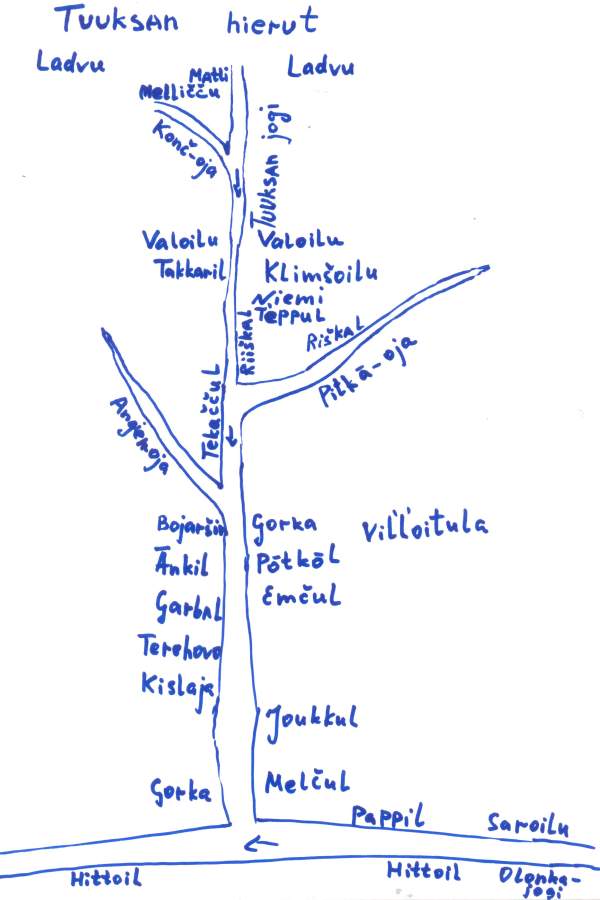 Tuuksan hierut
Ladvu
Ladvu
Matti
Melličču
Konč-oja
Tuuksan jogi
Valoilu
Valoilu
Takkaril
Klimšoilu
Niemi
Teppul
Riiškal
Riškal
Pitkä-oja
Tekaččul
Bojaršin
Gorka
Vil'l'oitula
Änkil
Pötköl
Garbal
Emčul
Terehovo
Kislaja
Joukkul
Gorka
Melčul
Pappil
Saroilu
Hittoil
Hittoil
Olonka-
jogi